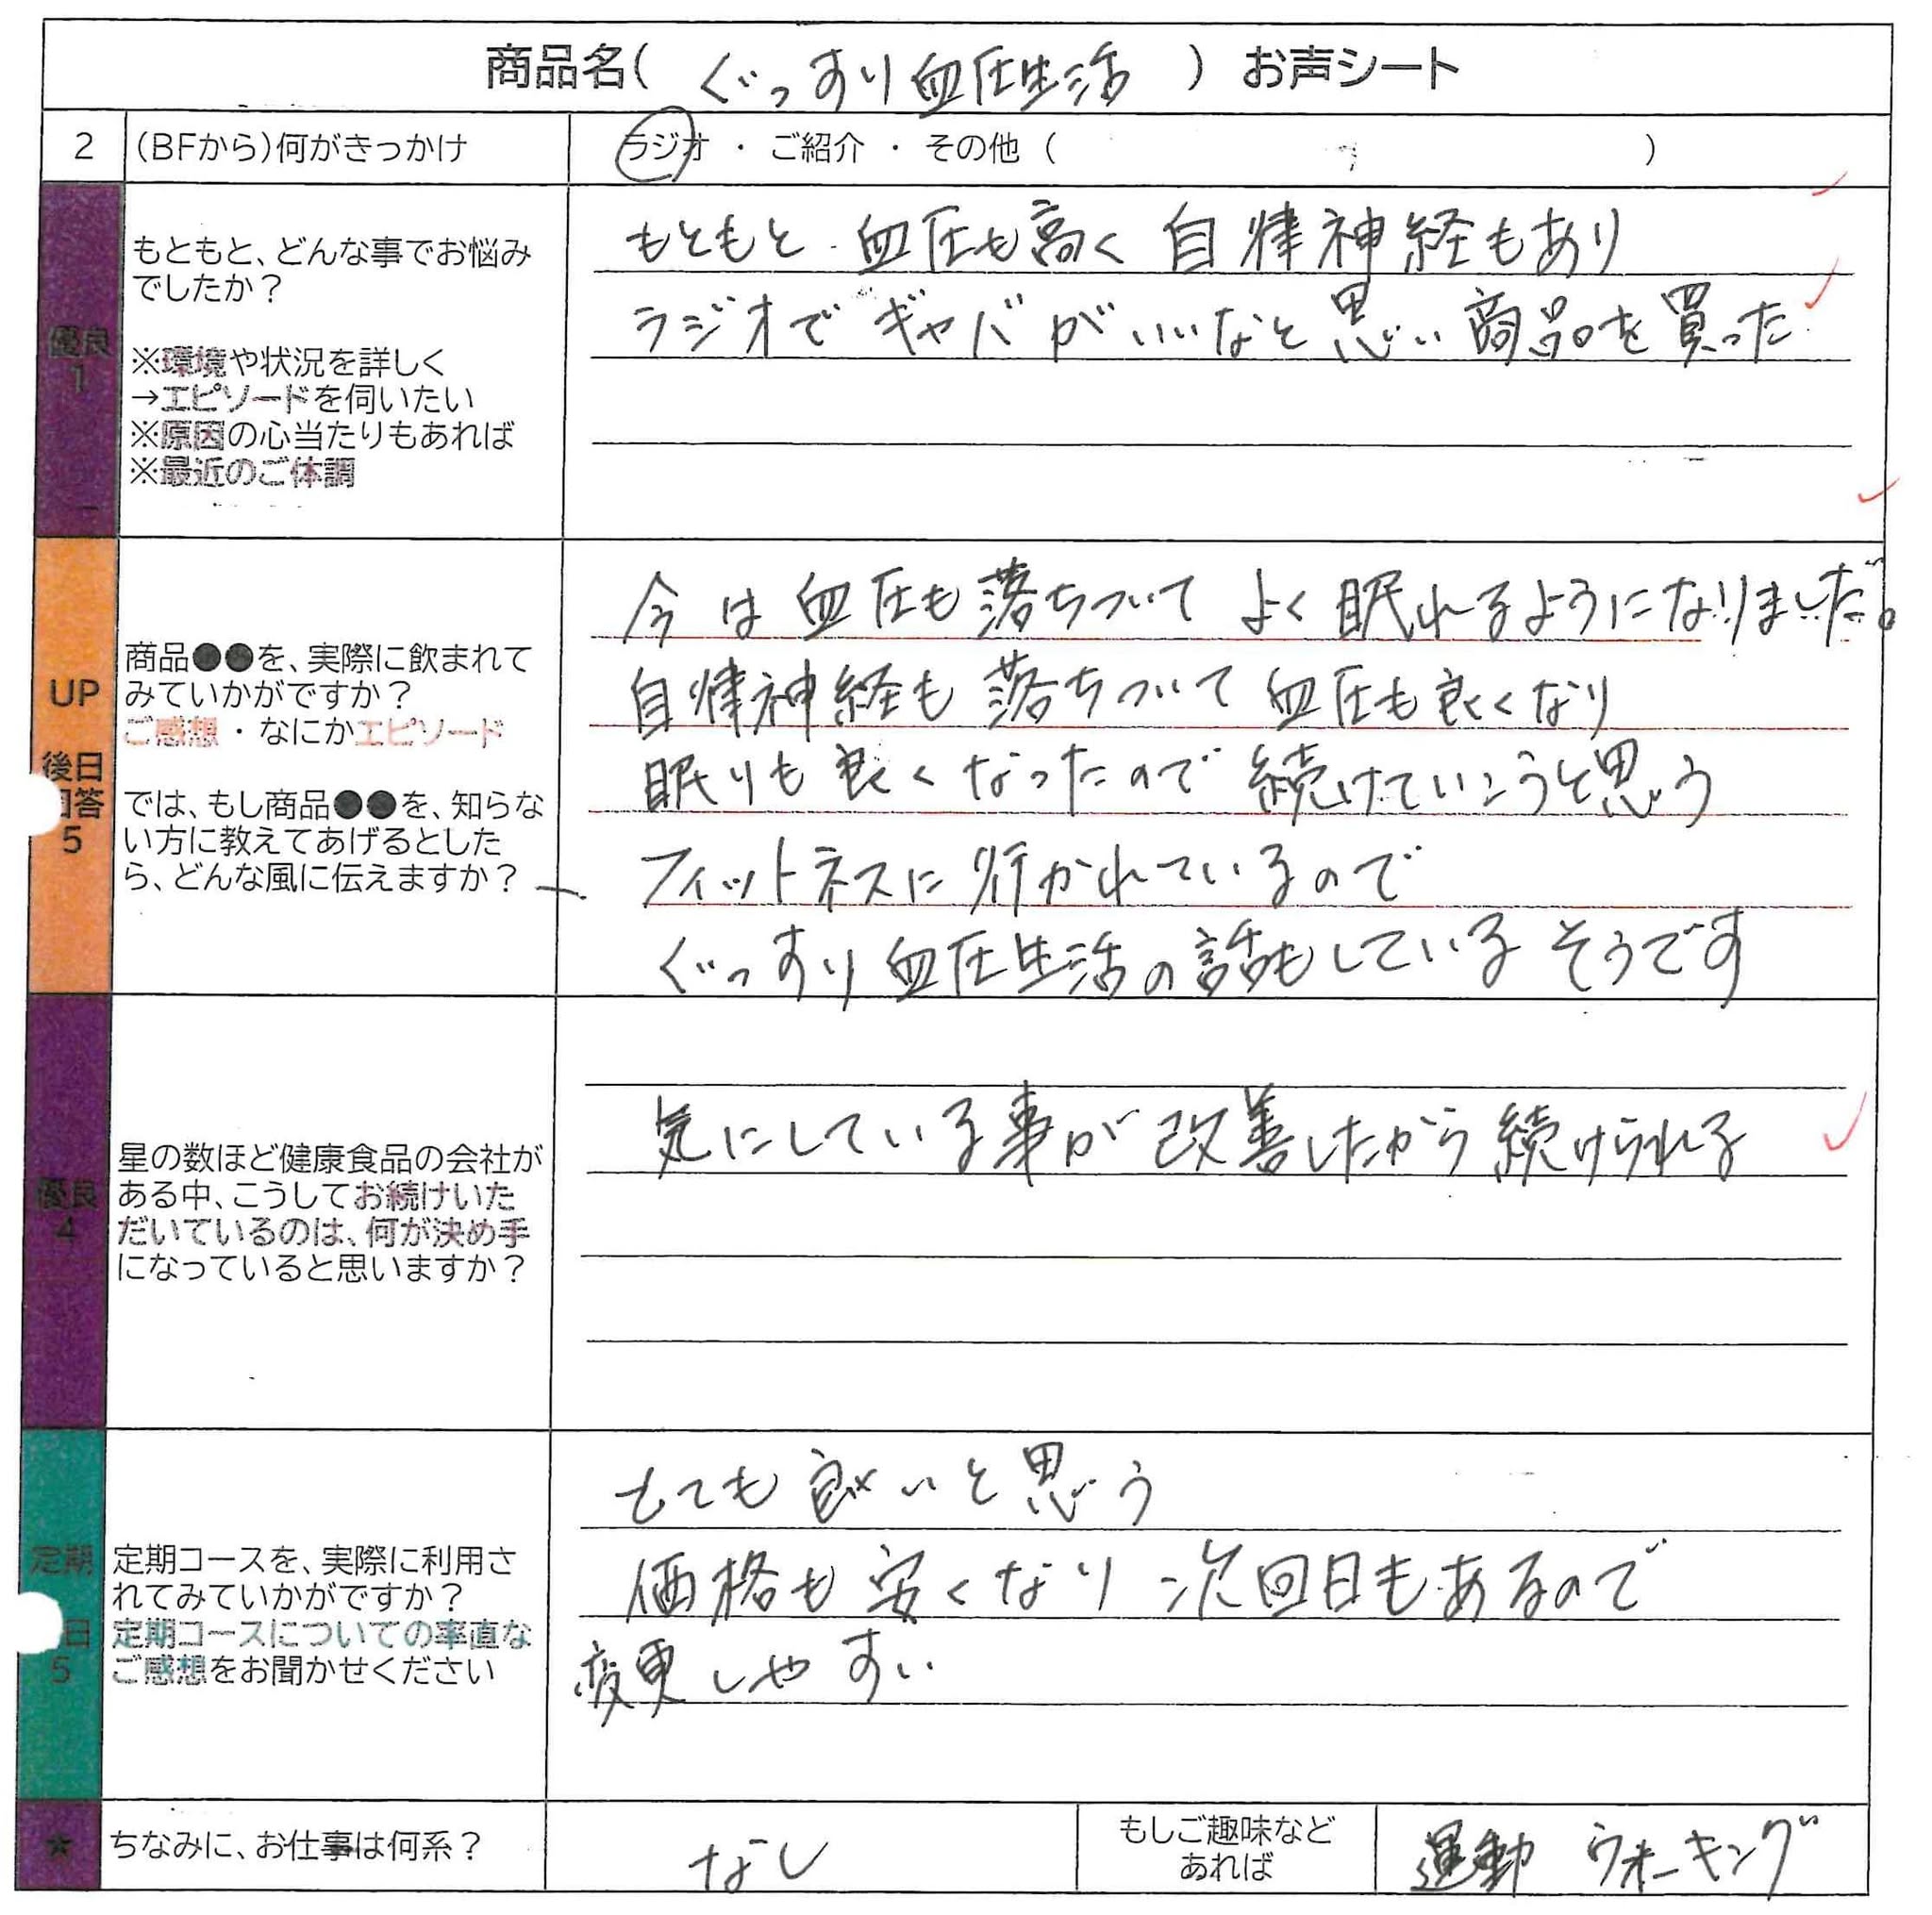 商品名( ぐっすり血圧生活 ) お声シート
2 (BFから)何がきっかけ ラジオ ・ ご紹介 ・ その他 ( )
優良
1
もともと、どんな事でお悩み
でしたか?
※環境や状況を詳しく
→エピソードを伺いたい
※原因の心当たりもあれば
※最近のご体調
もともと 血圧も高く 自律神経もあり
ラジオで ギャバがいいなと思い 商品を買った
UP
後日
回答
5
商品●●を、実際に飲まれて
みていかがですか?
ご感想・なにかエピソード
では、もし商品●●を、知らな
い方に教えてあげるとした
ら、どんな風に伝えますか?
今は血圧も落ちついて よく眠れるようになりました。
自律神経も落ちついて 血圧も良くなり
眠りも良くなったので 続けていこうと思う
フィットネスに行かれているので
ぐっすり血圧生活の話もしているそうです
優良
4
星の数ほど健康食品の会社が
ある中、こうしてお続けいた
だいているのは、何が決め手
になっていると思いますか?
気にしている事が改善したから続けられる
定期
日
5
定期コースを、実際に利用さ
れてみていかがですか?
定期コースについての率直な
ご感想をお聞かせください
とても良いと思う
価格も安くなり 次回日もあるので
変更しやすい
★ ちなみに、お仕事は何系? なし
もしご趣味など
あれば
運動 ウォーキング